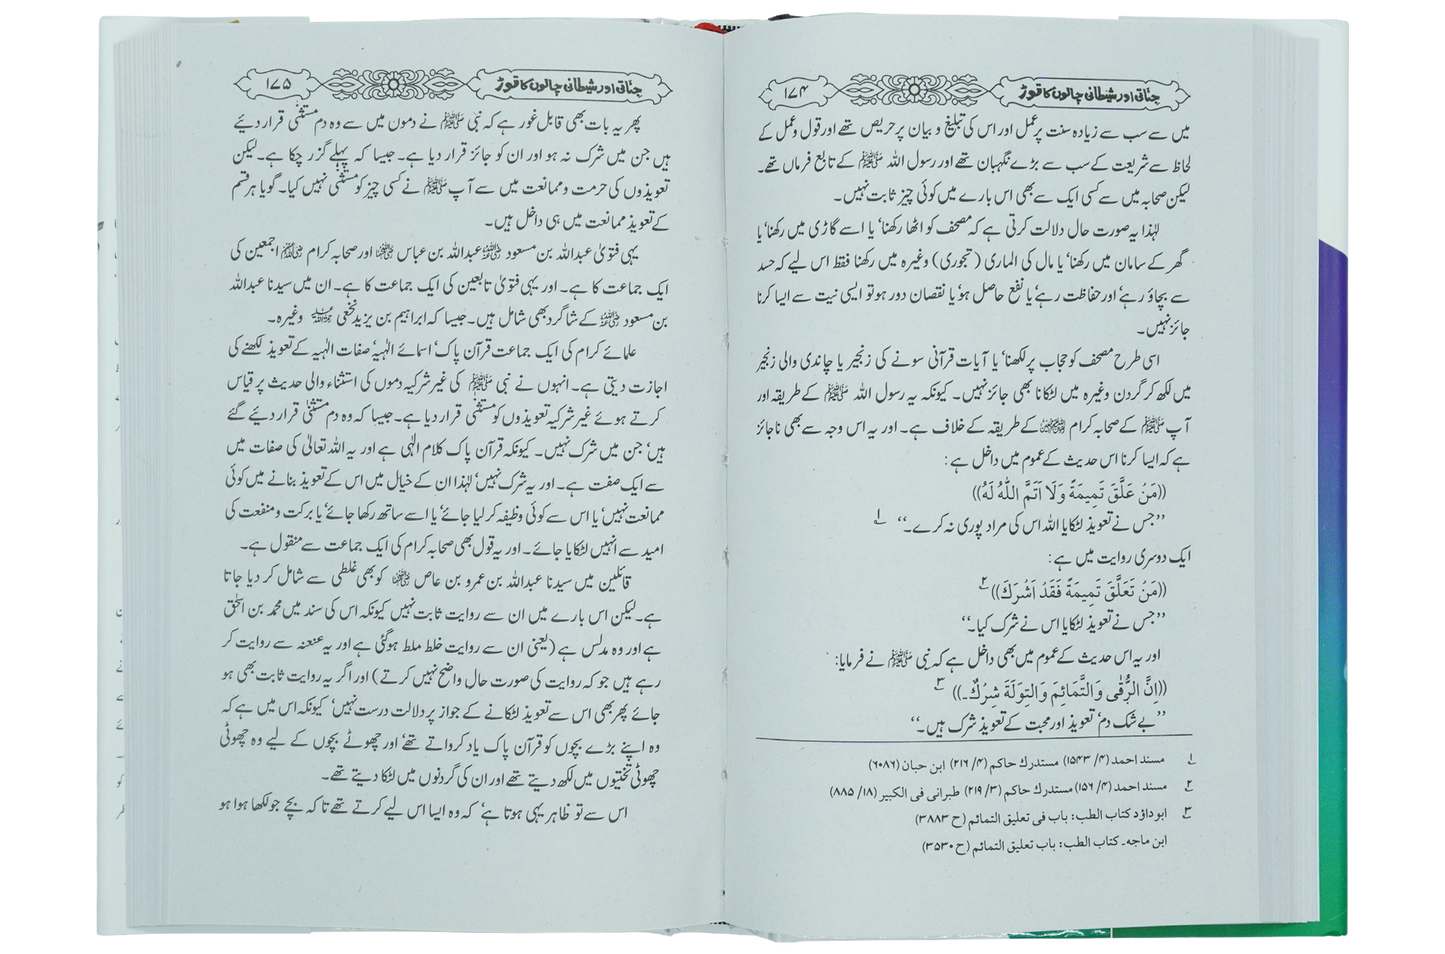 جناتی اور شیطانی چالوں کا توڑ ۱۷۴
میں سے سب سے زیادہ سنت پر عمل اور اس کی تبلیغ و بیان پر حریص تھے اور قول و عمل کے
لحاظ سے شریعت کے سب سے بڑے نگہبان تھے اور رسول اللہ ﷺ کے تابع فرماں تھے۔
لیکن صحابہ میں سے کسی ایک سے بھی اس بارے میں کوئی چیز ثابت نہیں۔
لہٰذا یہ صورت حال دلالت کرتی ہے کہ مصحف کو اٹھا رکھنا‘ یا اسے گاڑی میں رکھنا‘ یا
گھر کے سامان میں رکھنا‘ یا مال کی الماری (تجوری) وغیرہ میں رکھنا فقط اس لیے کہ حسد
سے بچاؤ رہے‘ اور حفاظت رہے‘ یا نفع حاصل ہو‘ یا نقصان دور ہو تو ایسی نیت سے ایسا کرنا
جائز نہیں۔
اسی طرح مصحف کو حجاب پر لکھنا‘ یا آیات قرآنی سونے کی زنجیر یا چاندی والی زنجیر
میں لکھ کر گردن وغیرہ میں لٹکانا بھی جائز نہیں۔ کیونکہ یہ رسول اللہ ﷺ کے طریقہ اور
آپ ﷺ کے صحابہ کرام کے طریقہ کے خلاف ہے۔ اور یہ اس وجہ سے بھی ناجائز
ہے کہ ایسا کرنا اس حدیث کے عموم میں داخل ہے:
((مَنْ عَلَّقَ تَمِيمَةً وَلَا اَتَمَّ اللّٰهُ لَهُ))
’’جس نے تعویذ لٹکایا اللہ اس کی مراد پوری نہ کرے۔‘‘ ۱
ایک دوسری روایت میں ہے:
((مَنْ تَعَلَّقَ تَمِيمَةً فَقَدْ اَشْرَكَ)) ۲
’’جس نے تعویذ لٹکایا اس نے شرک کیا۔‘‘
اور یہ اس حدیث کے عموم میں بھی داخل ہے کہ نبی ﷺ نے فرمایا:
((اِنَّ الرُّقٰى وَالتَّمَائِمَ وَالتِوَلَةَ شِرْكٌ۔)) ۳
’’بے شک دم‘ تعویذ اور محبت کے تعویذ شرک ہیں۔‘‘
۱ مسند احمد (۴/ ۱۵۴۳) مستدرک حاکم (۴/ ۲۱۶) ابن حبان (۶۰۸۶)
۲ مسند احمد (۴/ ۱۵۶) مستدرک حاکم (۳/ ۲۱۹) طبرانی فی الکبیر (۱۸/ ۸۸۵)
۳ ابوداؤد کتاب الطب: باب فی تعلیق التمائم (ح ۳۸۸۳)
ابن ماجہ۔ کتاب الطب: باب تعلیق التمائم (ح ۳۵۳۰)
جناتی اور شیطانی چالوں کا توڑ ۱۷۵
پھر یہ بات بھی قابل غور ہے کہ نبی ﷺ نے دموں میں سے وہ دم مستثنیٰ قرار دیئے
ہیں جن میں شرک نہ ہو اور ان کو جائز قرار دیا ہے۔ جیسا کہ پہلے گزر چکا ہے۔ لیکن
تعویذوں کی حرمت و ممانعت میں سے آپ ﷺ نے کسی چیز کو مستثنیٰ نہیں کیا۔ گویا ہر قسم
کے تعویذ ممانعت میں ہی داخل ہیں۔
یہی فتویٰ عبداللہ بن مسعود عبداللہ بن عباس اور صحابہ کرام اجمعین کی
ایک جماعت کا ہے۔ اور یہی فتویٰ تابعین کی ایک جماعت کا ہے۔ ان میں سیدنا عبداللہ
بن مسعود کے شاگرد بھی شامل ہیں۔ جیسا کہ ابراہیم بن یزید نخعی وغیرہ۔
علمائے کرام کی ایک جماعت قرآن پاک‘ اسمائے الٰہیہ‘ صفات الٰہیہ کے تعویذ لکھنے کی
اجازت دیتی ہے۔ انہوں نے نبی ﷺ کی غیر شرکیہ دموں کی استثناء والی حدیث پر قیاس
کرتے ہوئے غیر شرکیہ تعویذوں کو مستثنیٰ قرار دیا ہے۔ جیسا کہ وہ دم مستثنیٰ قرار دیئے گئے
ہیں‘ جن میں شرک نہیں۔ کیونکہ قرآن پاک کلام الٰہی ہے اور یہ اللہ تعالیٰ کی صفات میں
سے ایک صفت ہے۔ اور یہ شرک نہیں‘ لہٰذا ان کے خیال میں اس کے تعویذ بنانے میں کوئی
ممانعت نہیں‘ یا اس سے کوئی وظیفہ کر لیا جائے‘ یا اسے ساتھ رکھا جائے‘ یا برکت و منفعت کی
امید سے انہیں لٹکایا جائے۔ اور یہ قول بھی صحابہ کرام کی ایک جماعت سے منقول ہے۔
قائلین میں سیدنا عبداللہ بن عمرو بن عاص کو بھی غلطی سے شامل کر دیا جاتا
ہے۔ لیکن اس بارے میں ان سے روایت ثابت نہیں کیونکہ اس کی سند میں محمد بن اسحٰق
ہے اور وہ مدلس ہے (یعنی ان سے روایت خلط ملط ہوگئی ہے اور یہ عنعنہ سے روایت کر
رہے ہیں جو کہ روایت کی صورت حال واضح نہیں کرتے) اور اگر یہ روایت ثابت بھی ہو
جائے پھر بھی اس سے تعویذ لٹکانے کے جواز پر دلالت درست نہیں‘ کیونکہ اس میں ہے کہ
وہ اپنے بڑے بچوں کو قرآن پاک یاد کرواتے تھے‘ اور چھوٹے بچوں کے لیے وہ چھوٹی
چھوٹی تختیوں میں لکھ دیتے تھے اور ان کی گردنوں میں لٹکا دیتے تھے۔
اس سے تو ظاہر یہی ہوتا ہے‘ کہ وہ ایسا اس لیے کرتے تھے تا کہ بچے جو لکھا ہوا ہو